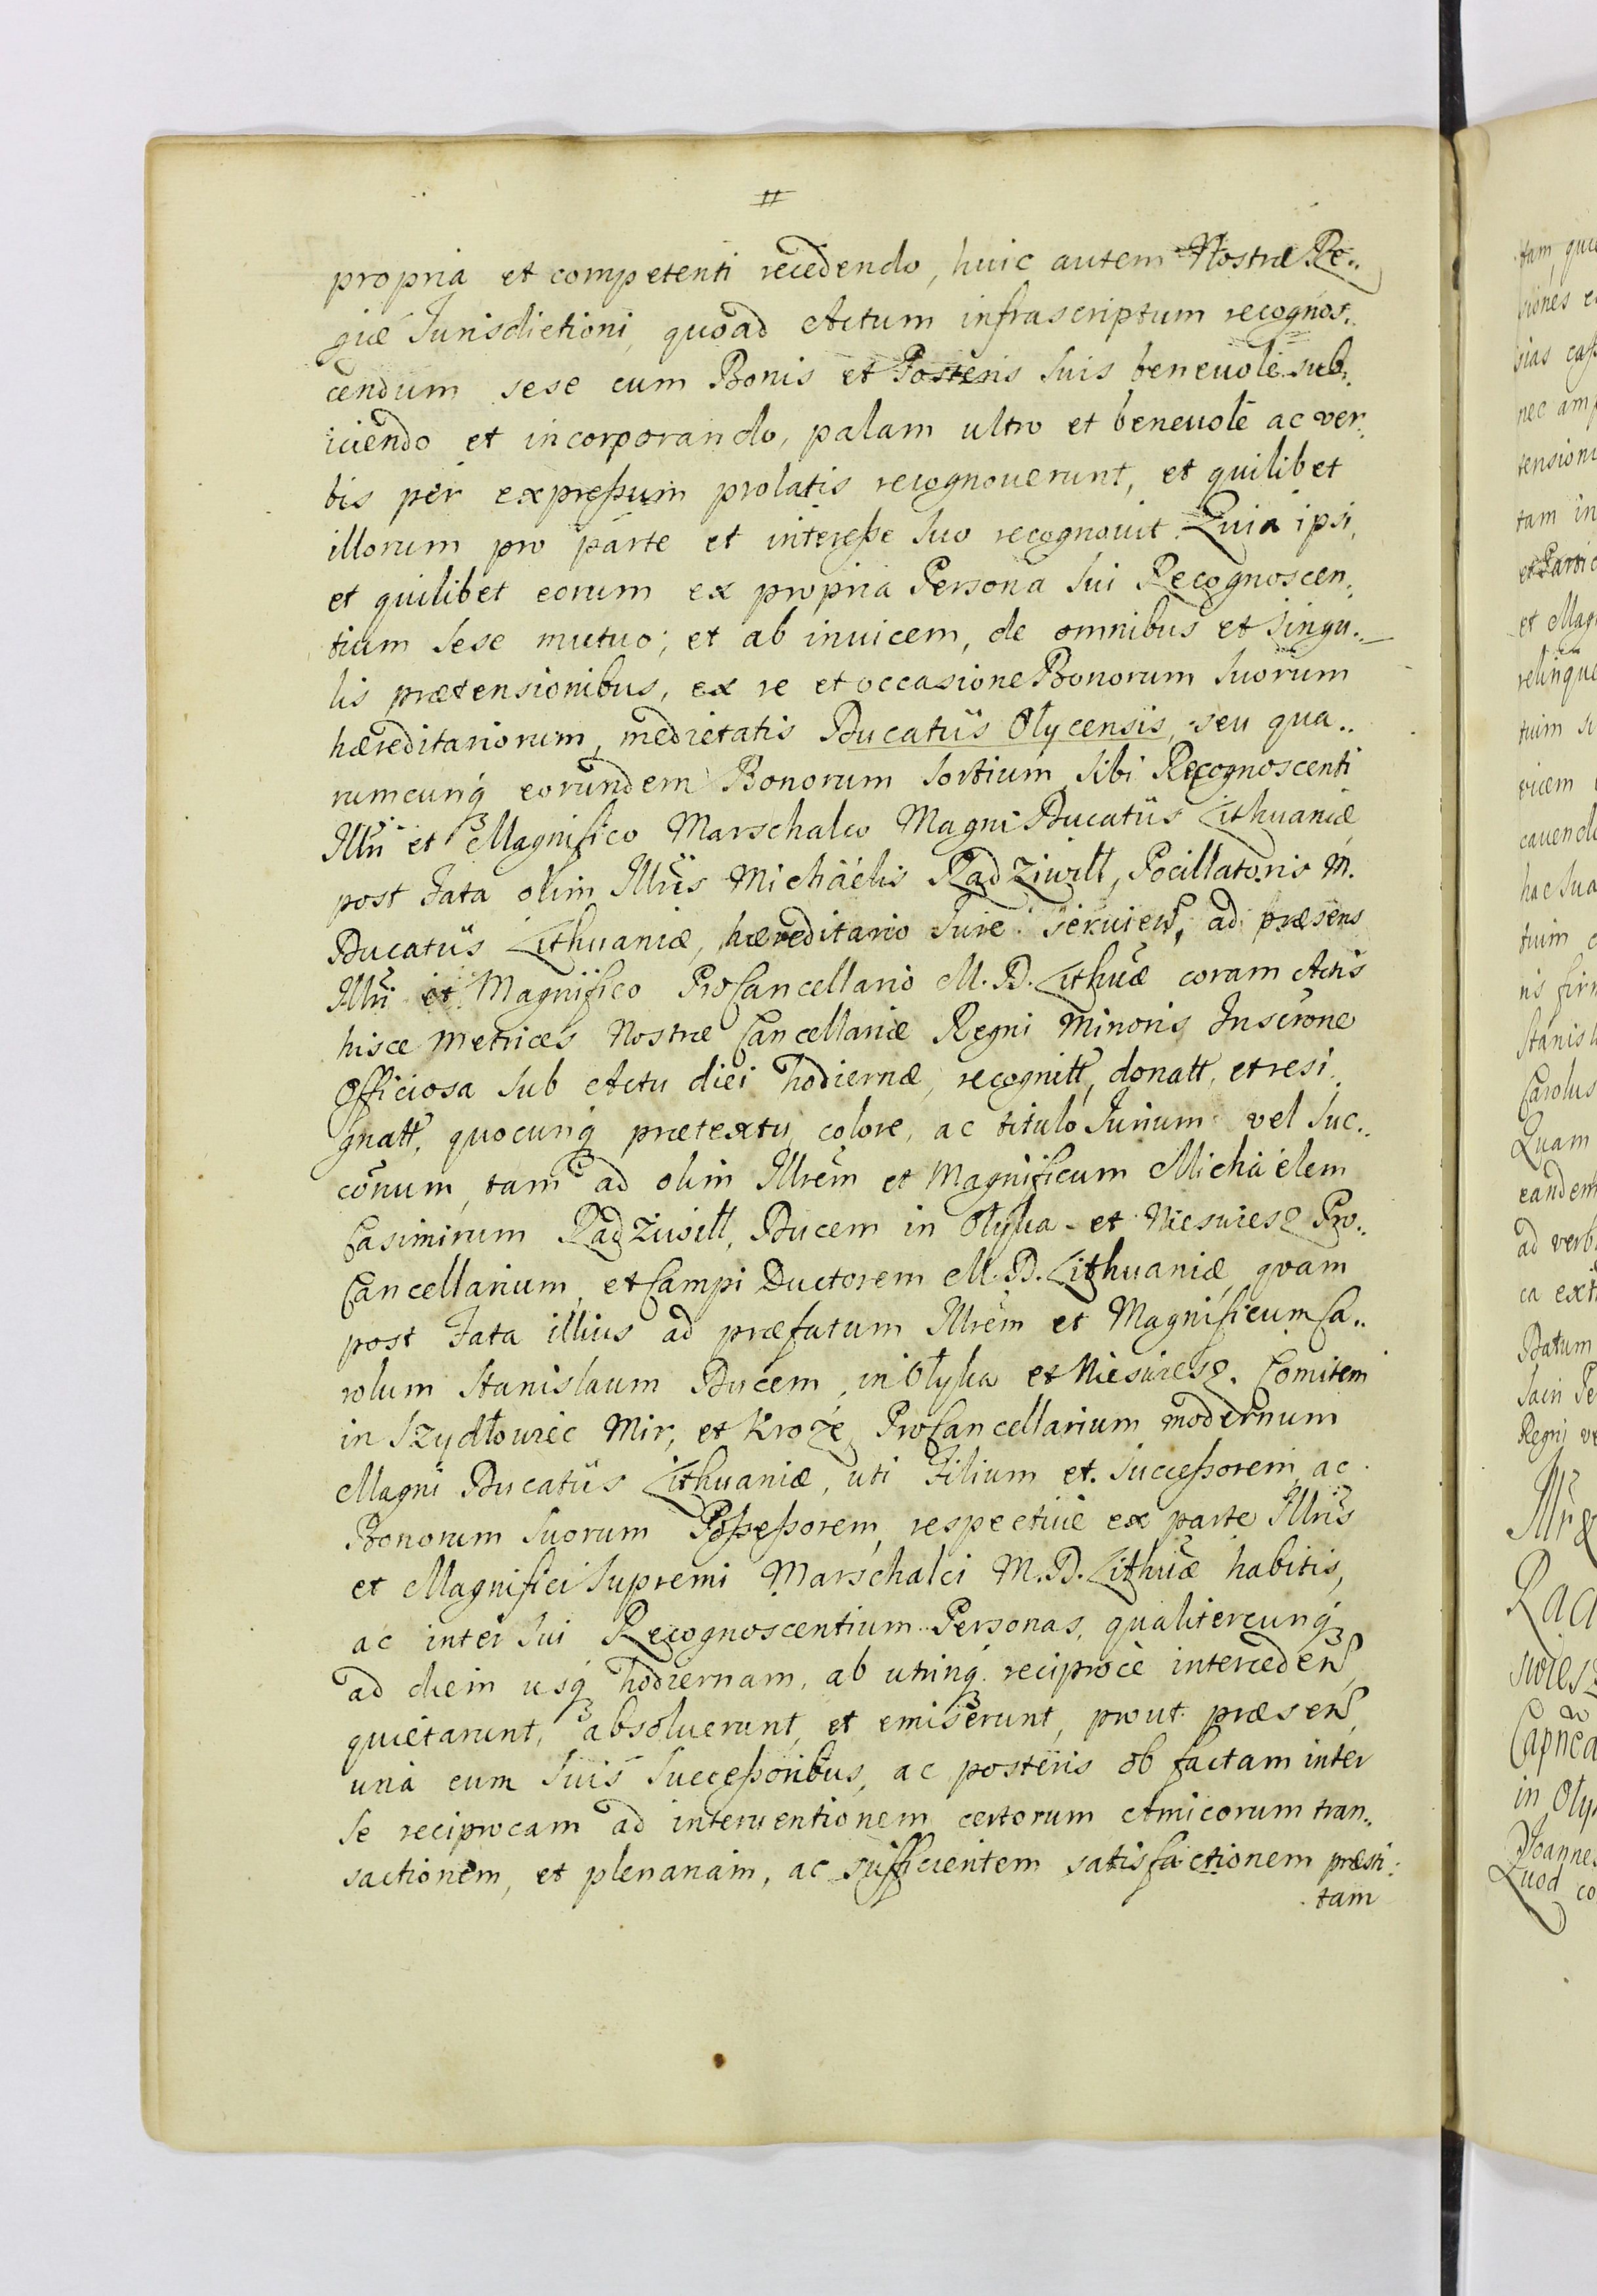 propria et competenti recedendo, huic autem Nostræ Re..
giæ Jurisdictioni, quoad Actum infrascriptum recognos..
cendum sese cum Bonis et Posteris suis beneuole sub..
iiciendo et incorporando, palam ultro et beneuolè ac ver..
bis per expreßum prolatis recognouerunt, et quilibet
illorum pro parte et intereße suo recognouit. Quia ipsi,
et quilibet eorum ex propria Persona sui Recognoscen..
tium sese mutuo; et ab inuicem, de omnibus et singu..
lis prætensionibus, ex re et occasione Bonorum suorum
hæreditariorum, medietatis Ducatûs Olycensis, seu qua..
rumcunq eorundem Bonorum sortium sibi Recognoscenti
Illri et Magnifico Marschalco Magni Ducatûs Lithuaniæ
post Fata olim Illris Michäelis Radziwill, Pocillatoris M.
Ducatûs Lithuaniæ, hæreditario Jure seruien, ad præsens
Illri et Magnifico ProCancellario M. D. Lithuæ coram Actis
hisce Metrices Nostræ Cancellariæ Regni Minoris Inscrone
Officiosa sub Actu diei hodiernæ, recognitt, donatt, et resi..
gnatt, quocunq prætextu, colore, ac titulo Jurium vel suc..
conum, tam ad olim Illrem et Magnificum Michäelem
Casimirum Radziwill, Ducem in Olyka et Nieswiesz Pro..
Cancellarium, et Campi Ductorem M. D. Lithuaniæ, quam
post Fata illius ad præfatum Illrem et Magnificum Ca..
rolum Stanislaum Ducem, in Olyka et Nieswiesz. Comitem
in Szydłowiec Mir, et Kroże, ProCancellarium modernum
Magni Ducatûs Lithuaniæ, uti Filium et Succeßorem, ac
Bonorum suorum Poßeßorem, respectiuè ex parte Illris
et Magnifici Supremi Marschalci M. D. Lithuæ habitis,
ac inter sui Recognoscentium Personas, qualitercunq
ad diem usq hodiernam, ab utrinq reciprocè interceden,
quietarunt, absoluerunt, et emiserunt, prout præsen,
unà cum suis Succeßoribus, ac posteris ob factam inter
se reciprocam ad interuentionem certorum Amicorum tran..
sactionem, et plenariam, ac sufficientem satisfactionem præsti:
tam